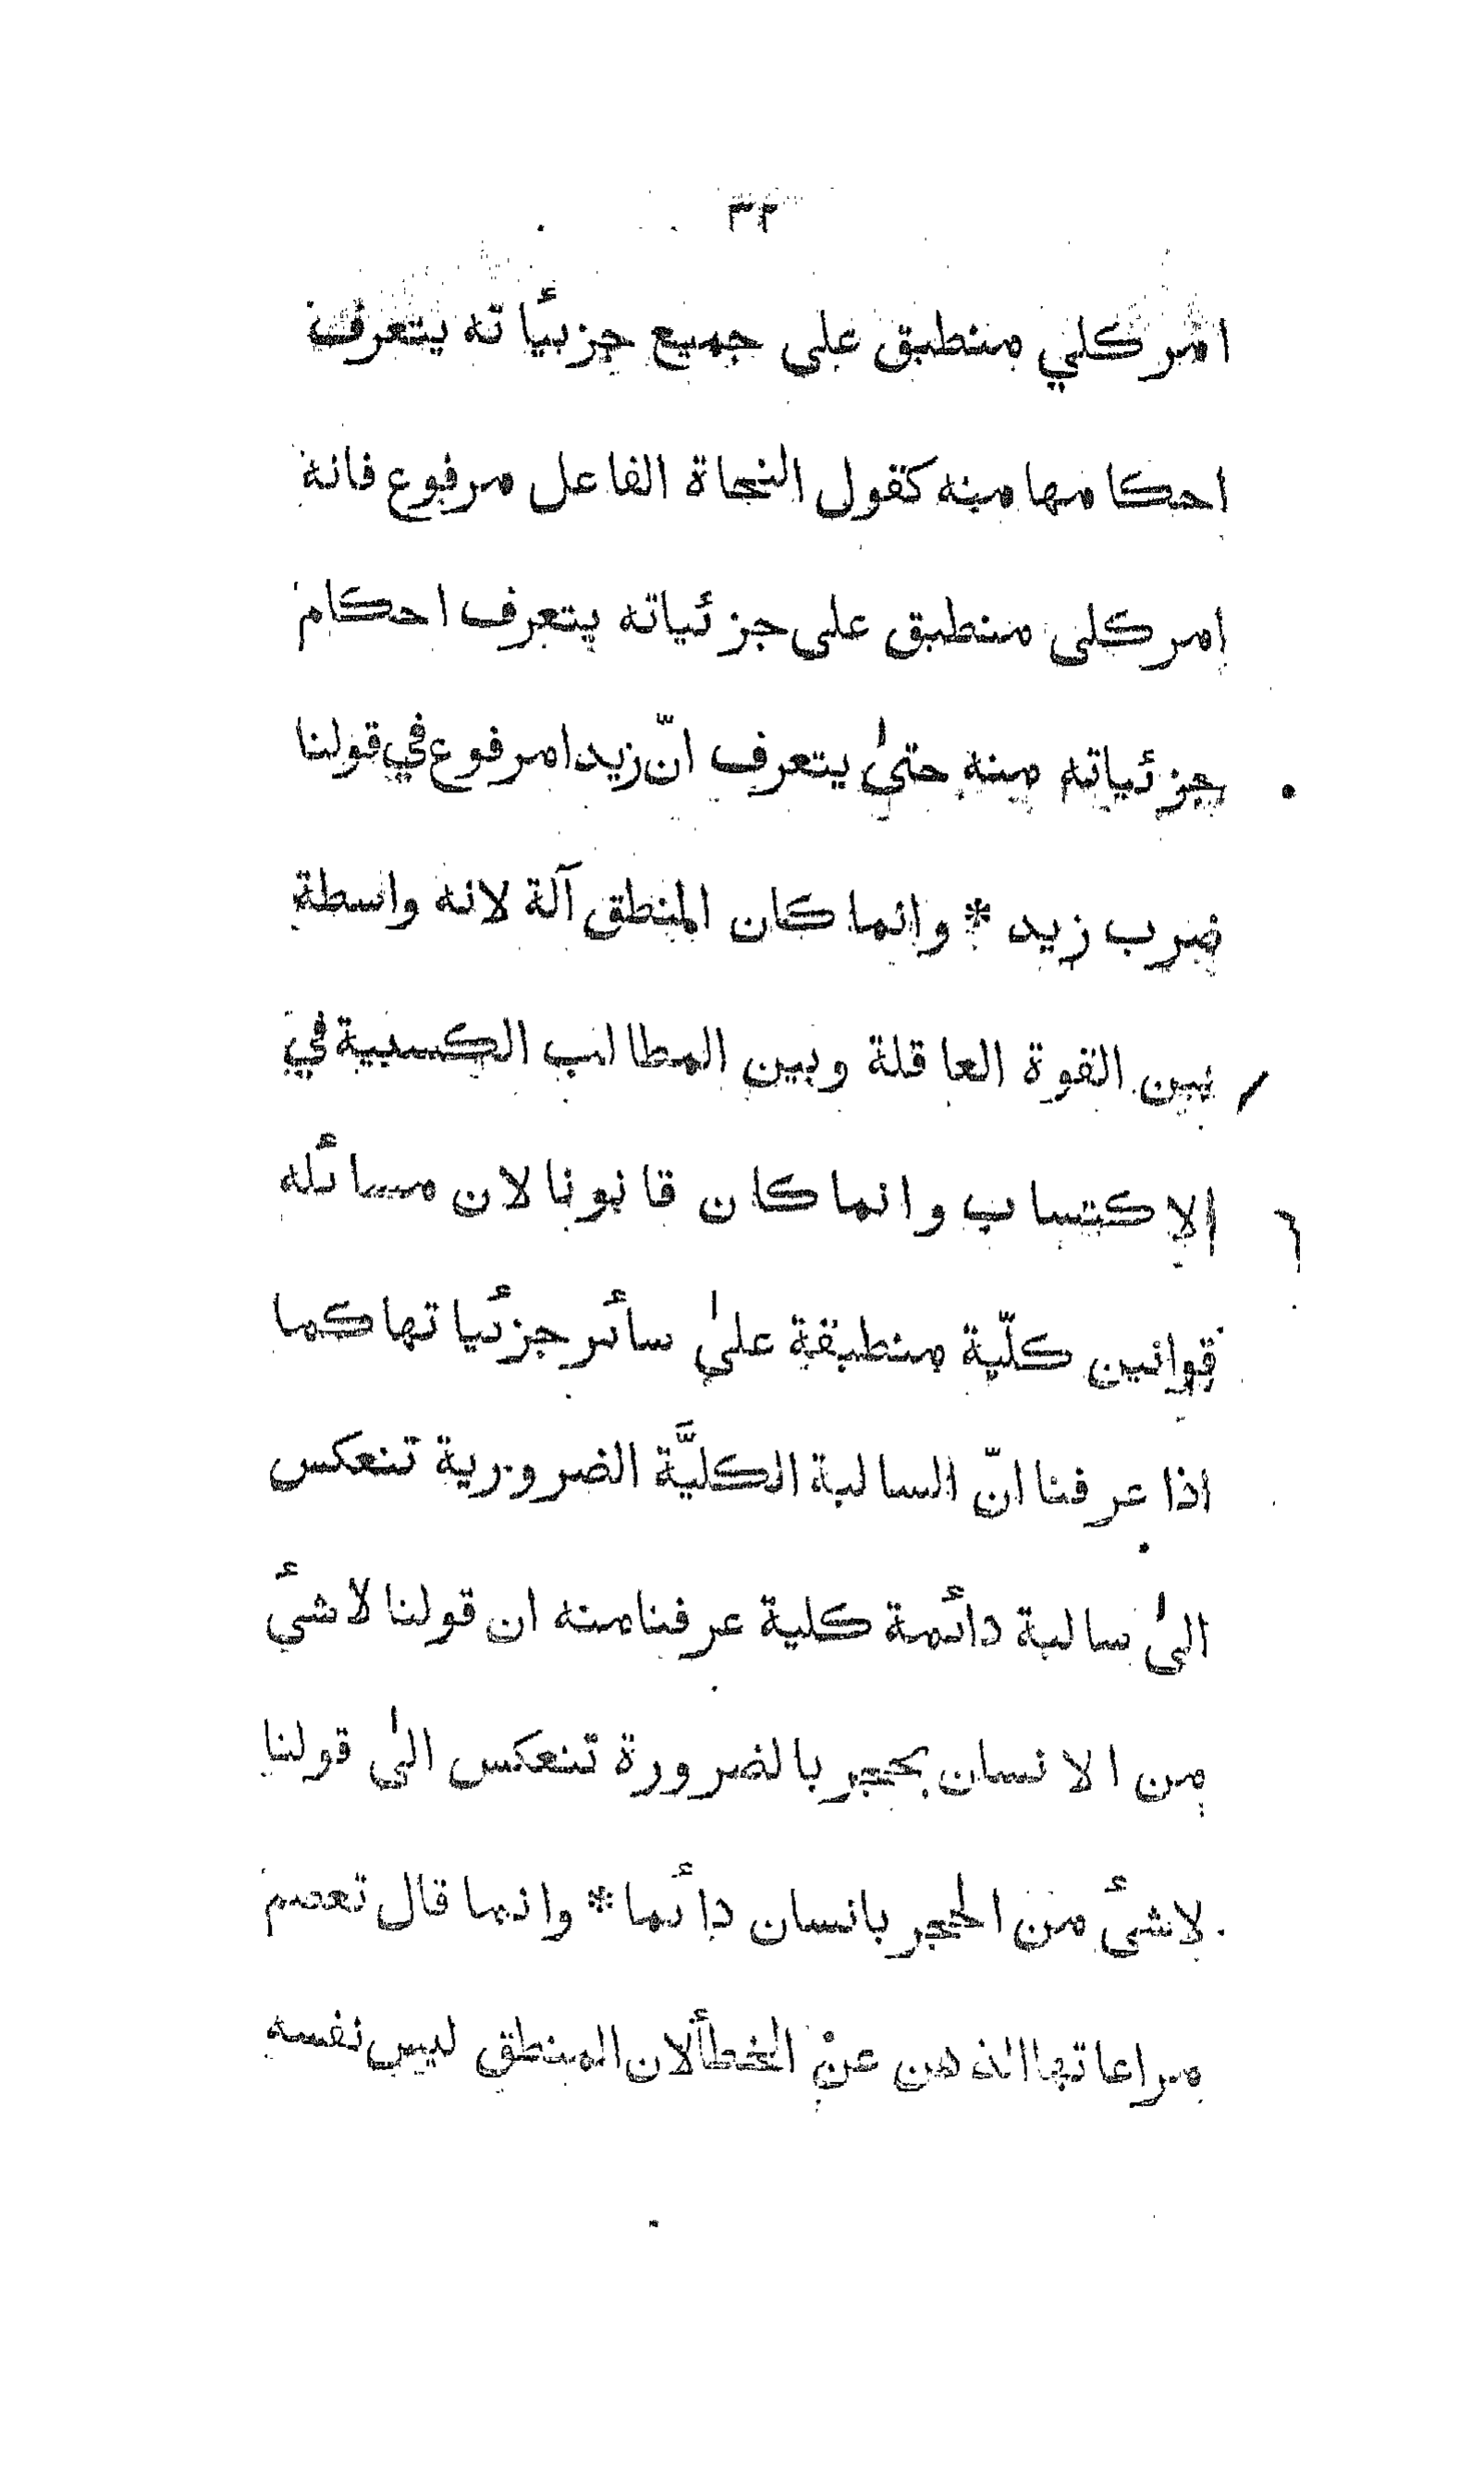 ٣٢
امر كلي منطبق على جميع جزئياته يتعرف
احكامها منه كقول النحاة الفاعل مرفوع فانه
امر كلى منطبق على جزئياته يتعرف احكام
جزئياته منه حتىٰ يتعرف انّ زيدا مرفوع في قولنا
ضرب زيد * وانما كان المنطق آلة لانه واسطة
بين القوة العاقلة وبين المطالب الكسبية في
الاكتساب وانما كان قانونا لان مسائله
قوانين كلّية منطبقة علىٰ سائر جزئياتها كما
اذا عرفنا انّ السالبة الكليَّة الضرورية تنعكس
الىٰ سالبة دائمة كلية عرفنا منه ان قولنا لاشئ
من الانسان بحجر بالضرورة تنعكس الىٰ قولنا
لاشئ من الحجر بانسان دائما * وانما قال تعصم
مراعاتها الذهن عن الخطألان المنطق ليس نفسه